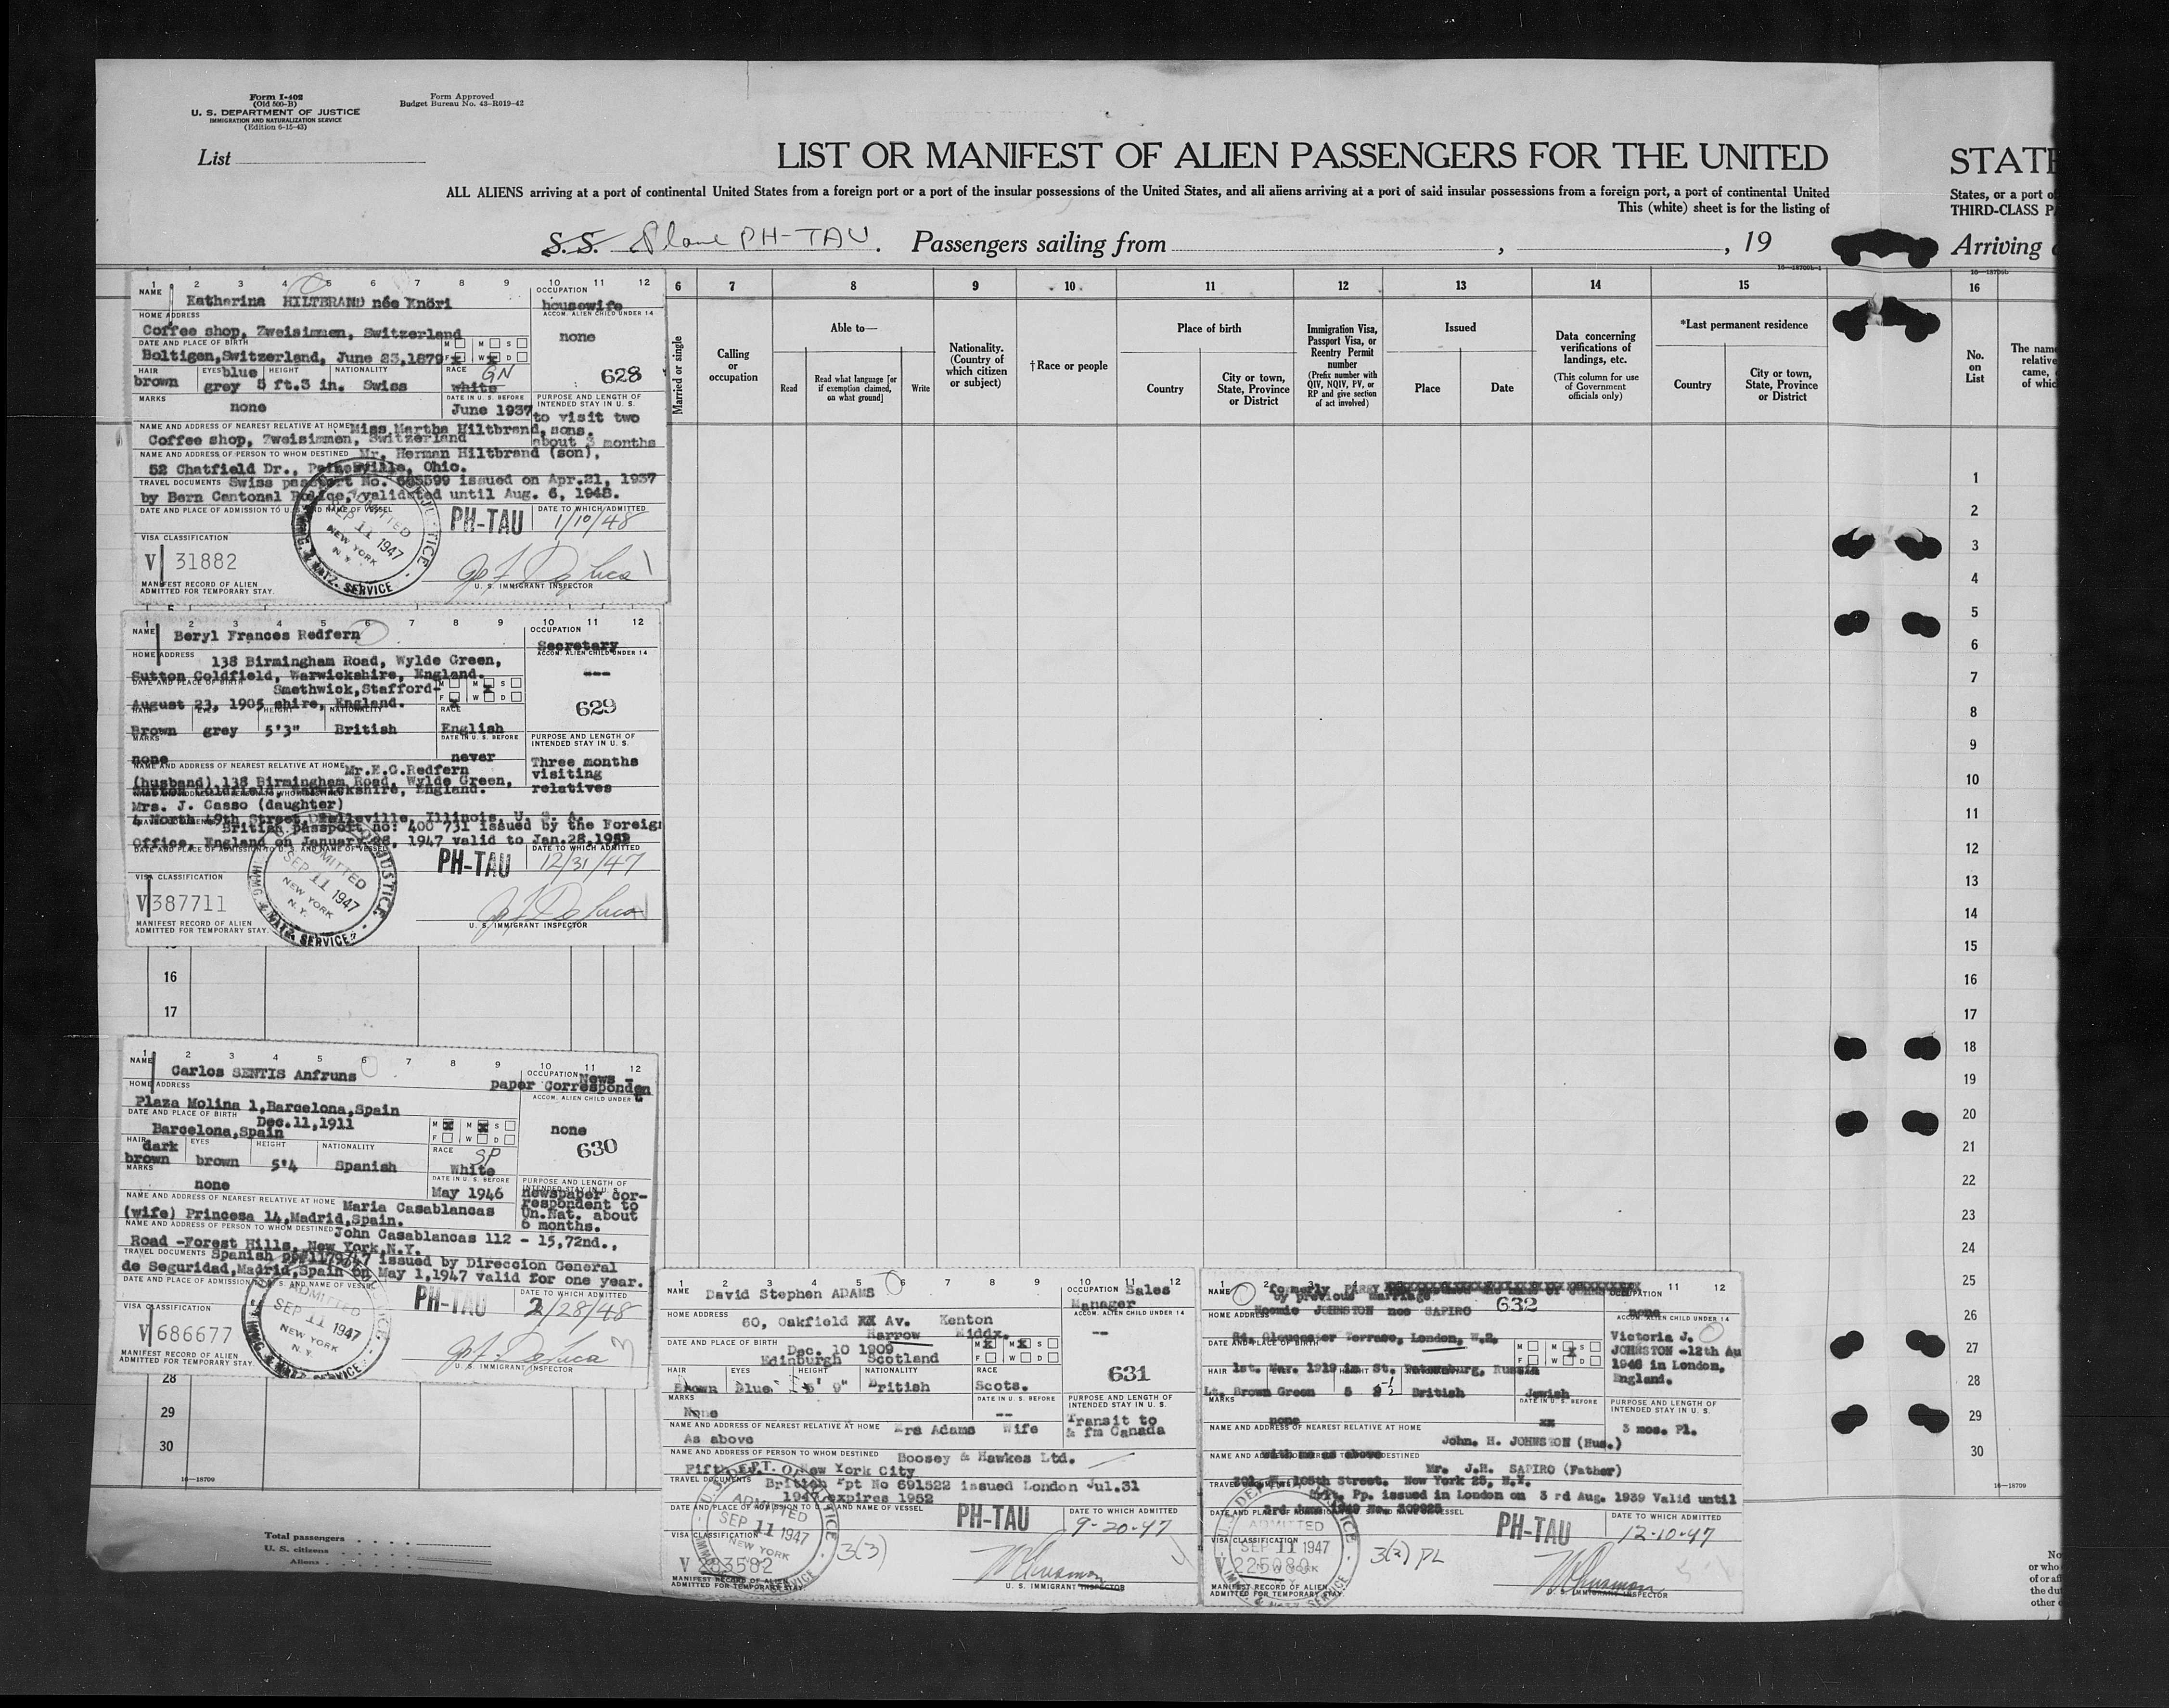 Form I-402
(Old 500-B)
U. S. DEPARTMENT OF JUSTICE
IMMIGRATION AND NATURALIZATION SERVICE
(Edition 6-15-43)
Form Approved
Budget Bureau No. 43-R019-42
List
LIST OR MANIFEST OF ALIEN PASSENGERS FOR THE UNITED
STATE
ALL ALIENS arriving at a port of continental United States from a foreign port or a port of the insular possessions of the United States, and all aliens arriving at a port of said insular possessions from a foreign port, a port of continental United
States, or a port of
This (white) sheet is for the listing of
THIRD-CLASS P
S.S. Plane PH-TAU. Passengers sailing from , , 19
Arriving
6 7 8 9 10 11 12 13 14 15 16
Married or single
Calling or occupation
Able to—
Read
Read what language [or if exemption claimed, on what ground]
Write
Nationality. (Country of which citizen or subject)
†Race or people
Place of birth
Country
City or town, State, Province or District
Immigration Visa, Passport Visa, or Reentry Permit number
(Prefix number with QIV, NQIV, PV, or RP and give section of act involved)
Issued
Place
Date
Data concerning verifications of landings, etc.
(This column for use of Government officials only)
*Last permanent residence
Country
City or town, State, Province or District
No. on List
The name
relative
came,
of which
1 2 3 4 5 6 7 8 9 10 11 12
NAME Katharina HILTBRAND née Knöri
OCCUPATION housewife
HOME ADDRESS
Coffee shop, Zweisimmen, Switzerland
ACCOM. ALIEN CHILD UNDER 14
none
DATE AND PLACE OF BIRTH
Boltigen,Switzerland, June 23,1879
M M S
F W D
HAIR brown EYES blue grey HEIGHT 5 ft.3 in. NATIONALITY Swiss RACE white GN
628
MARKS none
DATE IN U.S. BEFORE June 1937
PURPOSE AND LENGTH OF INTENDED STAY IN U. S.
to visit two sons, about 3 months
NAME AND ADDRESS OF NEAREST RELATIVE AT HOME Miss Martha Hiltbrand,
Coffee shop, Zweisimmen, Switzerland
NAME AND ADDRESS OF PERSON TO WHOM DESTINED Mr. Herman Hiltbrand (son),
52 Chatfield Dr., Ohio.
TRAVEL DOCUMENTS Swiss passport No. issued on Apr.21, 1937
by Bern Cantonal Police, validated until Aug. 6, 1948.
DATE AND PLACE OF ADMISSION TO U. S. AND NAME OF VESSEL
PH-TAU
DATE TO WHICH ADMITTED
1/10/48
ADMITTED
SEP 11 1947
NEW YORK
N. Y.
VISA CLASSIFICATION
V 31882
MANIFEST RECORD OF ALIEN
ADMITTED FOR TEMPORARY STAY.
U. S. IMMIGRANT INSPECTOR
1 2 3 4 5 6 7 8 9 10 11 12
NAME Beryl Frances Redfern
OCCUPATION Secretary
HOME ADDRESS 138 Birmingham Road, Wylde Green,
Sutton Coldfield, Warwickshire, England.
ACCOM. ALIEN CHILD UNDER 14
---
DATE AND PLACE OF BIRTH Smethwick,Stafford-
August 23, 1905 shire, England.
M M S
F W D
629
Brown grey 5'3" British English
MARKS none
DATE IN U.S. BEFORE never
PURPOSE AND LENGTH OF INTENDED STAY IN U. S.
Three months visiting relatives
NAME AND ADDRESS OF NEAREST RELATIVE AT HOME Mr.E.C.Redfern
(husband) 138 Birmingham Road, Wylde Green,
Sutton Coldfield, Warwickshire, England.
Mrs. J. Casso (daughter)
4 North 49th Street, Belleville, Illinois, U. S. A.
British passport no: 400 731 issued by the Foreign
Office, England on January 28, 1947 valid to Jan.28,1952
DATE AND PLACE OF ADMISSION TO U. S. AND NAME OF VESSEL
PH-TAU
DATE TO WHICH ADMITTED
12/31/47
ADMITTED
SEP 11 1947
NEW YORK
N. Y.
VISA CLASSIFICATION
V 387711
MANIFEST RECORD OF ALIEN
ADMITTED FOR TEMPORARY STAY.
U. S. IMMIGRANT INSPECTOR
16
17
1 2 3 4 5 6 7 8 9 10 11 12
NAME Carlos SENTIS Anfruns
OCCUPATION News paper Correspondent
HOME ADDRESS
Plaza Molina 1,Barcelona,Spain
ACCOM. ALIEN CHILD UNDER
none
DATE AND PLACE OF BIRTH Dec.11,1911
Barcelona,Spain
M M S
F W D
630
HAIR dark brown EYES brown HEIGHT 5'4 NATIONALITY Spanish RACE White SP
MARKS none
DATE IN U.S. BEFORE May 1946
PURPOSE AND LENGTH OF INTENDED STAY IN U. S.
newspaper correspondent to Un.Nat. about 6 months.
NAME AND ADDRESS OF NEAREST RELATIVE AT HOME Maria Casablancas
(wife) Princesa 14,Madrid,Spain.
NAME AND ADDRESS OF PERSON TO WHOM DESTINED John Casablancas 112 - 15,72nd.,
Road -Forest Hills, New York,N.Y.
TRAVEL DOCUMENTS Spanish issued by Direccion General
de Seguridad,Madrid,Spain on May 1,1947 valid for one year.
DATE AND PLACE OF ADMISSION TO U. S. AND NAME OF VESSEL
PH-TAU
DATE TO WHICH ADMITTED
2/28/48
ADMITTED
SEP 11 1947
NEW YORK
N. Y.
VISA CLASSIFICATION
V 686677
MANIFEST RECORD OF ALIEN
ADMITTED FOR TEMPORARY STAY.
U. S. IMMIGRANT INSPECTOR
28
29
30
16—18709
Total passengers
U. S. citizens
Aliens
1 2 3 4 5 6 7 8 9 10 11 12
NAME David Stephen ADAMS
OCCUPATION Sales Manager
HOME ADDRESS 60, Oakfield Av. Kenton
Harrow Middx.
ACCOM. ALIEN CHILD UNDER 14
--
DATE AND PLACE OF BIRTH Dec. 10 1909
Edinburgh Scotland
M M S
F W D
631
HAIR Brown EYES Blue HEIGHT 5' 9" NATIONALITY British RACE Scots.
MARKS None
DATE IN U.S. BEFORE --
PURPOSE AND LENGTH OF INTENDED STAY IN U. S.
Transit to & fm Canada
NAME AND ADDRESS OF NEAREST RELATIVE AT HOME Mrs Adams Wife
As above
NAME AND ADDRESS OF PERSON TO WHOM DESTINED Boosey & Hawkes Ltd.
Fifth Av. New York City
TRAVEL DOCUMENTS British Ppt No 691522 issued London Jul.31
1947 expires 1952
DATE AND PLACE OF ADMISSION TO U. S. AND NAME OF VESSEL
PH-TAU
DATE TO WHICH ADMITTED
9-20-47
ADMITTED
SEP 11 1947
NEW YORK
3(3)
VISA CLASSIFICATION
MANIFEST RECORD OF ALIEN
ADMITTED FOR TEMPORARY STAY.
U. S. IMMIGRANT INSPECTOR
NAME formerly PARRY
by previous marriage
632
Noemie JOHNSTON nee SAPIRO
OCCUPATION none
HOME ADDRESS
Gloucester Terrace, London, W.2.
ACCOM. ALIEN CHILD UNDER 14
Victoria J. JOHNSTON -12th Au 1946 in London, England.
1st. Mar. 1919 in St. Petersburg, Russia
M M S
F W D
Lt. Brown Green British Jewish
MARKS none
PURPOSE AND LENGTH OF INTENDED STAY IN U. S.
3 mos. Pl.
NAME AND ADDRESS OF NEAREST RELATIVE AT HOME
John. H. JOHNSTON (Hus.)
with me as above
Mr. J.H. SAPIRO (Father)
105th Street. New York 25, N.Y.
Brit. Pp. issued in London on 3 rd Aug. 1939 Valid until
3rd June 1949
PH-TAU
DATE TO WHICH ADMITTED
12-10-47
ADMITTED
SEP 11 1947
NEW YORK
3(2) PL
VISA CLASSIFICATION
MANIFEST RECORD OF ALIEN
ADMITTED FOR TEMPORARY STAY.
U. S. IMMIGRANT INSPECTOR
1
2
3
4
5
6
7
8
9
10
11
12
13
14
15
16
17
18
19
20
21
22
23
24
25
26
27
28
29
30
16—18709
No
or who
of or aff
the dut
other